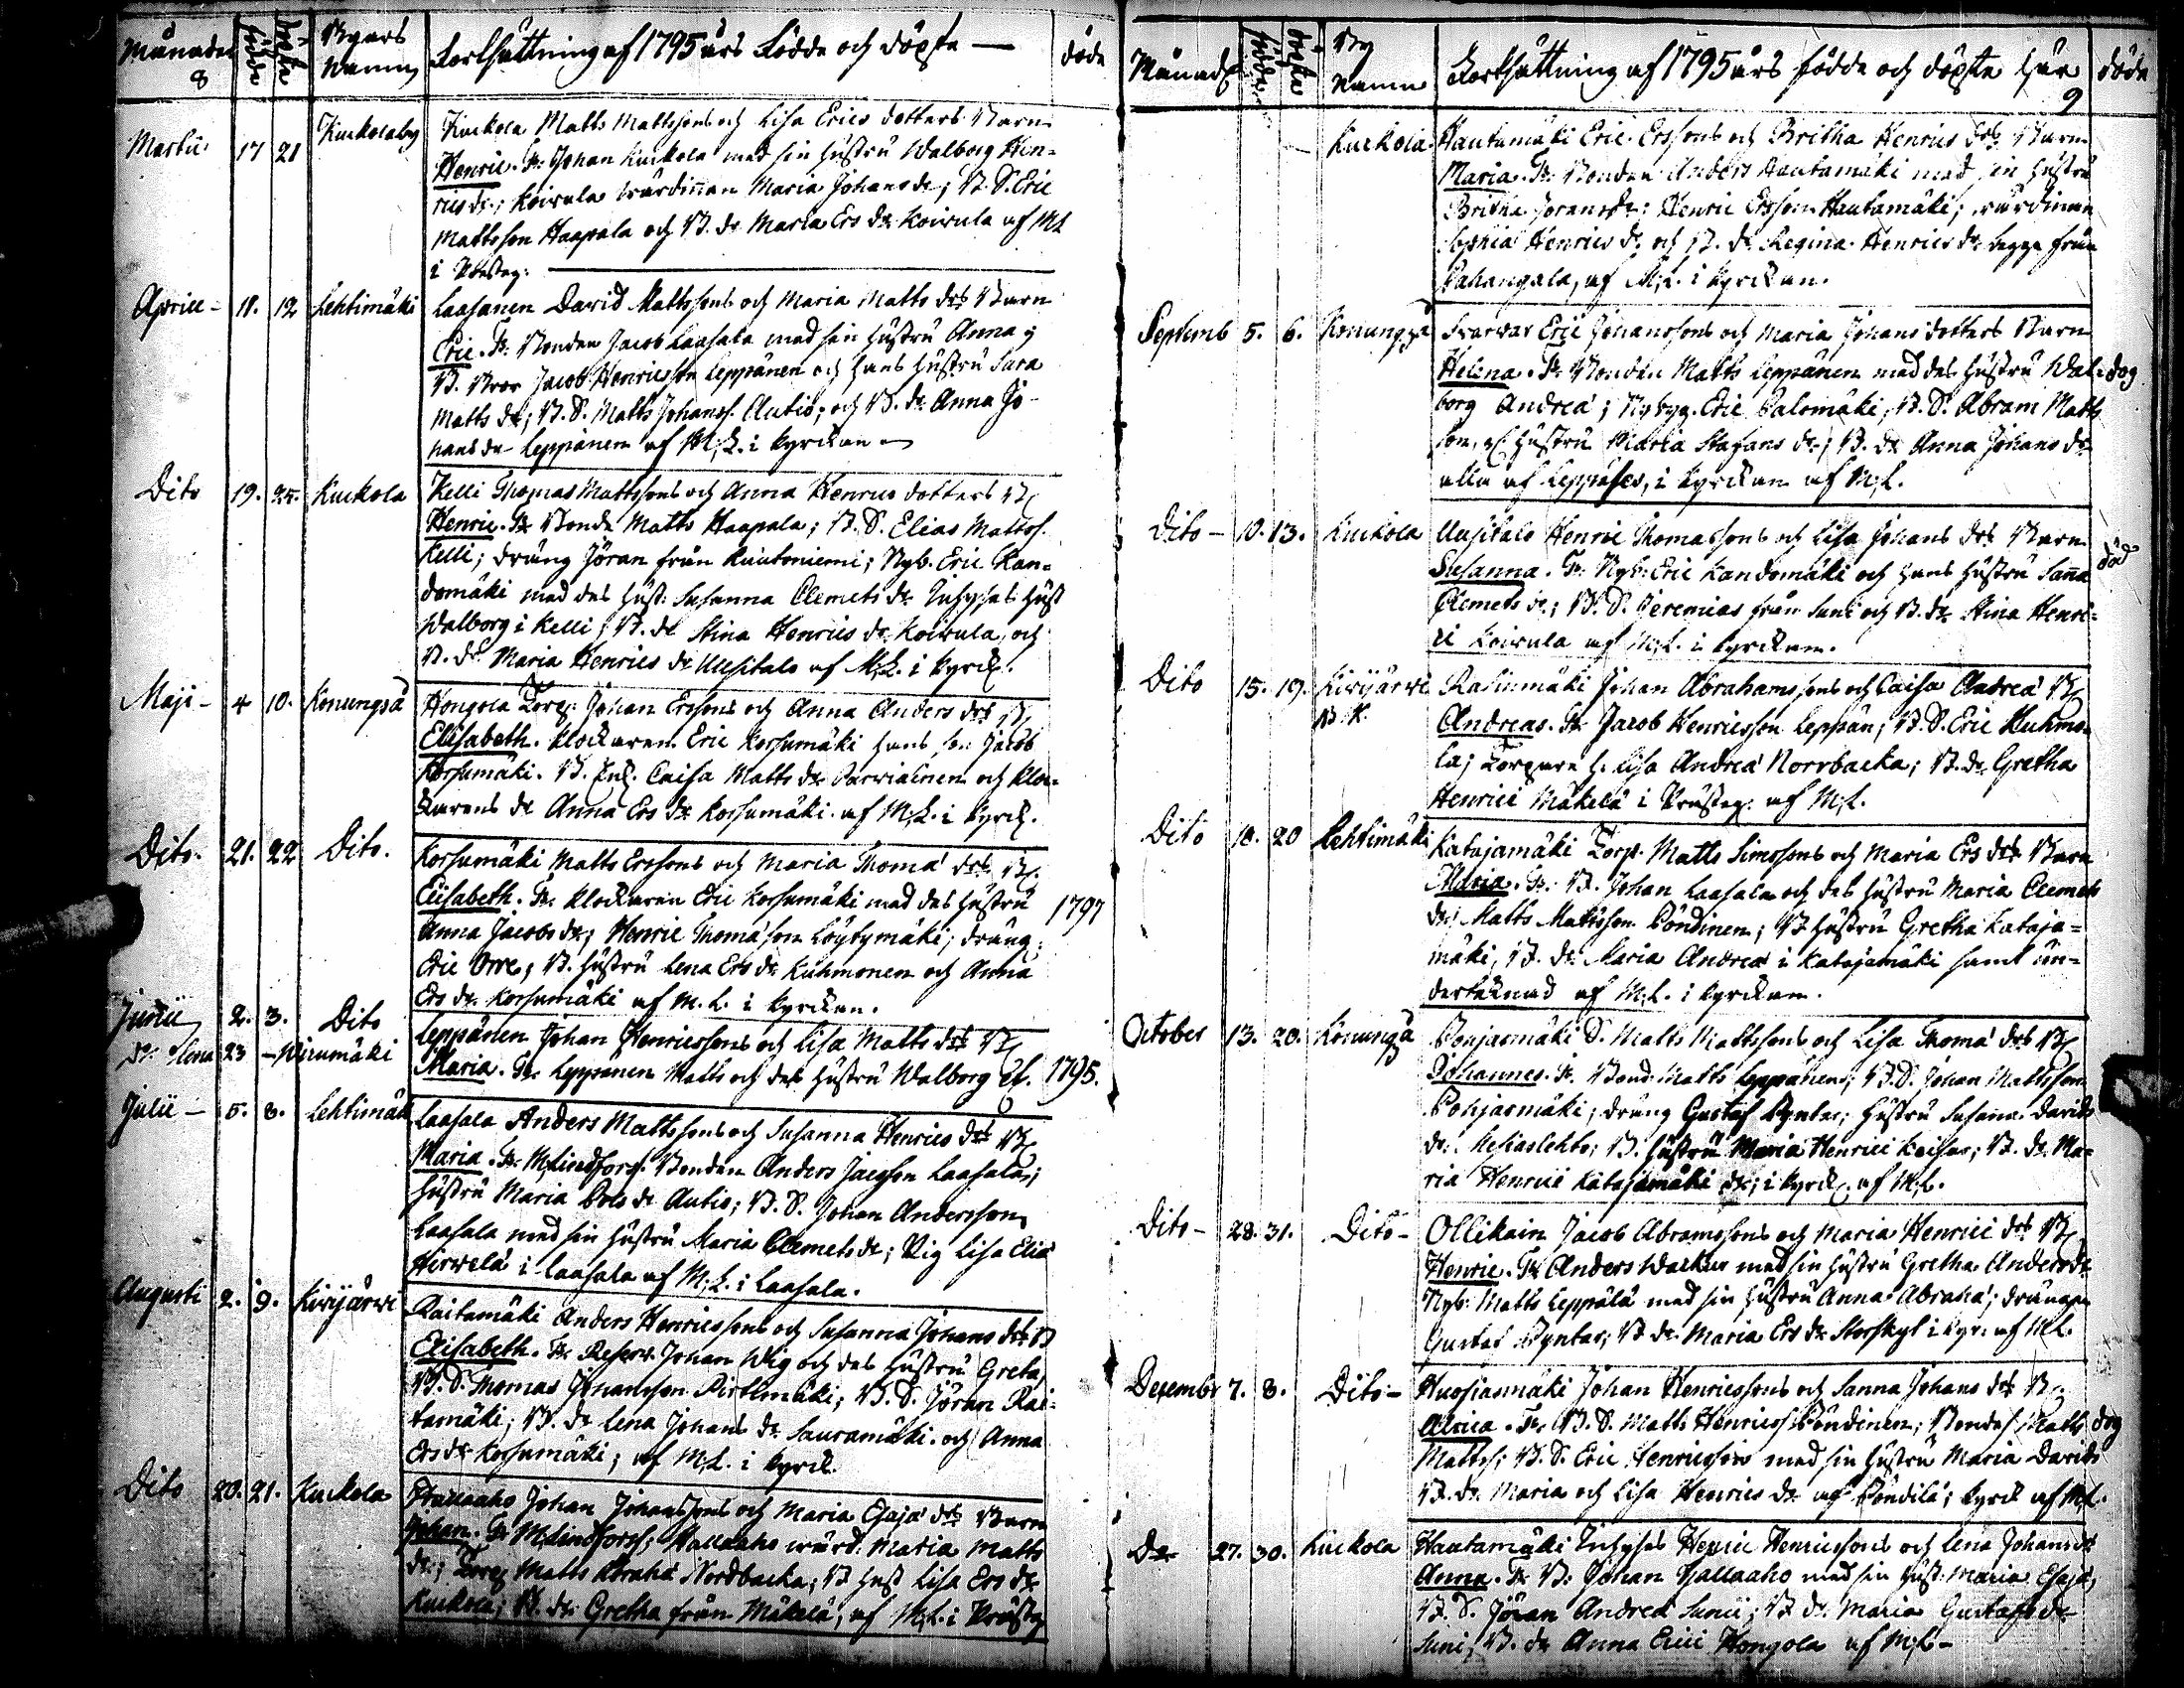 Månader födde döpte Byars Namn Fortsättning af 1795 års Födde och döpte — döde
8
Martii 17 21 Kuckolaby Kuckola Matts Mattssons och Lisa Erics dotters Barn
Henric. Fr. Johan Kuckola med sin hustru Walborg Hen-
rics dr; Koivula wärdinnan Maria Johans dr; B. S. Eric
Mattsson Haapala och B. dr Maria Ers dr Koivula af ML
i Prästeg:
Aprill - 11. 12 Lehtimäki Laasanen David Mattssons och Maria Matts drs Barn
Eric. Fr. Bonden Jacob Laasala med sin hustru Anna;
B. Bror Jacob Henricsson Leppänen och hans hustru Sara
Matts dr; B. S. Matts Johanss. Autio; och B. dr Anna Jo-
hans dr Leppänen af M.L. i kyrckan
Dito 19. 25. Kuckola Kelli Thomas Mattssons och Anna Henrics dotters B.
Henric. Fr Bond. Matts Haapala; B. S. Elias Mattss.
Kelli; dräng Jöran från Rautoniemi; Nyb. Eric Kan-
domäki med des hust: Susanna Clemets dr Inhyses hust
Walborg i Kelli; B. dr Stina Henrics dr Koivula, och
B. dr Maria Henrics dr Uusitalo af M.L. i kyrck.
Maji - 4 10. Konungså Hongola Torp. Johan Erssons och Anna Anders drs B.
Elisabeth. Klockaren Eric Korsumäki hans son Jacob
Korsumäki. B. Caisa Matts dr och Kloc-
karens dr Anna Ers dr Korsumäki af M.L. i kyrck.
Dito. 21. 22 Dito. Korsumäki Matts Erssons och Maria Thomæ drs B.
Elisabeth. Fr. Klockaren Eric Korsumäki med des hustru 1797
Anna Jacobs dr; Henric Thomæson Löytymäki; dräng
Eric Orre; B. hustru Lena Ers dr Kuhmonen och Anna
Ers dr Korsumäki af M.L. i kyrckan.
Junii 2. 3. Dito Leppänen Johan Henricssons och Lisa Matts drs B.
dr: Lena 23 - Maria. Fr. Leppänen Matts och des hustru Walborg 1795.
Julii - 5. 8. Lehtimäk Laasala Anders Mattssons och Susanna Henrics drs B.
Maria. Fr. M. Lindfors. Bonden Anders Jacsson Laasala;
hustru Maria dr Autio; B. S. Johan Andersson
Laasala med sin hustru Maria Clemets dr; Pig Lisa Eliæ
Hirvelä i Laasala af M.L. i Laasala.
Augusti 2. 9. Kivijärvi Raitamäki Anders Henricssons och Susanna Johans drs B
Elisabeth. Fr. Johan Wig och des hustru Greta,
B. S. Thomas Johansson Pirttimäki; B. S. Jöran Rai-
tamäki; B. dr Lena Johans dr Sauramäki och Anna
Ers dr Korsumäki; af M.L. i kyrck.
Dito 20. 21. Kuckola Hallaaho Johan Johanssons och Maria Esajæ drs Barn
Johan. Fr M. Lindfors; Hallaaho wärd. Maria Matts
dr; Torp Matts Abrahæ Nordbacka; B hust Lisa Ers dr
Kuckola; B. dr Gretha från Mäkelä, af M.L. i Präste
Månad födde döpte By Namn Fortsättning af 1795 års födde och döpte här döde
9
Kuckola Hautamäki Eric Erssons och Britha Henrics drs Barn
Maria. Fr. Bonden Anders Hautamäki med sin hustru
Britha Jörans dr; Henric Ersson Hautamäki; wärdinnan
Sophia Henrics dr och B. dr Regina Henrics dr begge från
Pahangala, af M.L. i kyrckan.
Septemb 5. 6. Konungså Svarvar Eric Johanssons och Maria Johans dotters Barn
Helena. Fr. Bonden Matts Leppänen med des hustru Wal- dog
borg Andreæ; Nybyg. Eric Palomäki, B. S. Abram Matts
son, hustru Maria Stafans dr; B. dr Anna Johans dr
alla af Leppäses, i kyrckan af M.L.
Dito - 10. 13. Kuckola Uusitalo Henric Thomassons och Lisa Johans drs Barn
Susanna. Fr. Nyb. Eric Kandomäki och hans hustru Sanna död
Clemets dr; B. S. Jeremias från Suni och B. dr Stina Henri-
ci Koivula af M.L. i kyrckan.
Dito 15. 19. Kivijärvi Rasinmäki Johan Abrahamssons och Caisa Andreæ B
B. K. Andreas. Fr Jacob Henricsson Leppän; B. S. Eric Kuhmo-
la; Torparn h. Lisa Andreæ Norrbacka; B. dr Gretha
Henrici Mäkelä i Prästeg: af M.L.
Dito 18. 20 Lehtimäki Katajamäki Torp. Matts Simssons och Maria Ers drs Barn
Maria. Fr. B. Johan Laasala och des hustru Maria Clemets
dr, Matts Mattsson Pöndinen; B hustru Gretha Kataja-
mäki, B. dr Maria Andreæ i Katajamäki samt un-
dertecknad af M.L. i kyrckan.
October 13. 20. Konungså Pohjasmäki S. Matts Mattssons och Lisa Thomæ drs B
Johannes. Fr. Bond. Matts Leppänens; B. S. Johan Mattsson
Pohjasmäki; dräng Gustaf Pynter; hustru Susann. Davids
dr. Keljaslehto; B. hustru Maria Henrici Keisar; B. dr Ma-
ria Henrici Katajamäki dr; i kyrck. af M.L.
Dito - 28. 31. Dito - Ollikain Jacob Abramssons och Maria Henrici drs B
Henric. Fr Anders Wacker med sin hustru Gretha Anders dr
Nyb: Matts Leppälä med sin hustru Anna Abrahæ; drängen
Gustaf Pynter; B dr Maria Ers dr Storskyt i kyr. af ML.
Decembr 7. 8. Dito - Huosianmäki Johan Henricssons och Sanna Johans drs B
Ulrica. Fr. B. S. Matts Henricss Pöndinen; Bondes. Matts dog
Mattss; B. S. Eric Henricsson med sin hustru Maria Davids
B. dr Maria och Lisa Henrics dr af Pöndilä; kyrck af ML.
Dr 27. 30. Kuckola Hautamäki Inhyses Henric Henricssons och Lena Johans dr
Anna. Fr B: Johan Hallaaho med sin hust: Maria Esajæ;
B. S. Jöran Andreæ Sunii; B dr Maria Gustafs dr
Suni; B. dr Anna Erici Hongola af M.L -